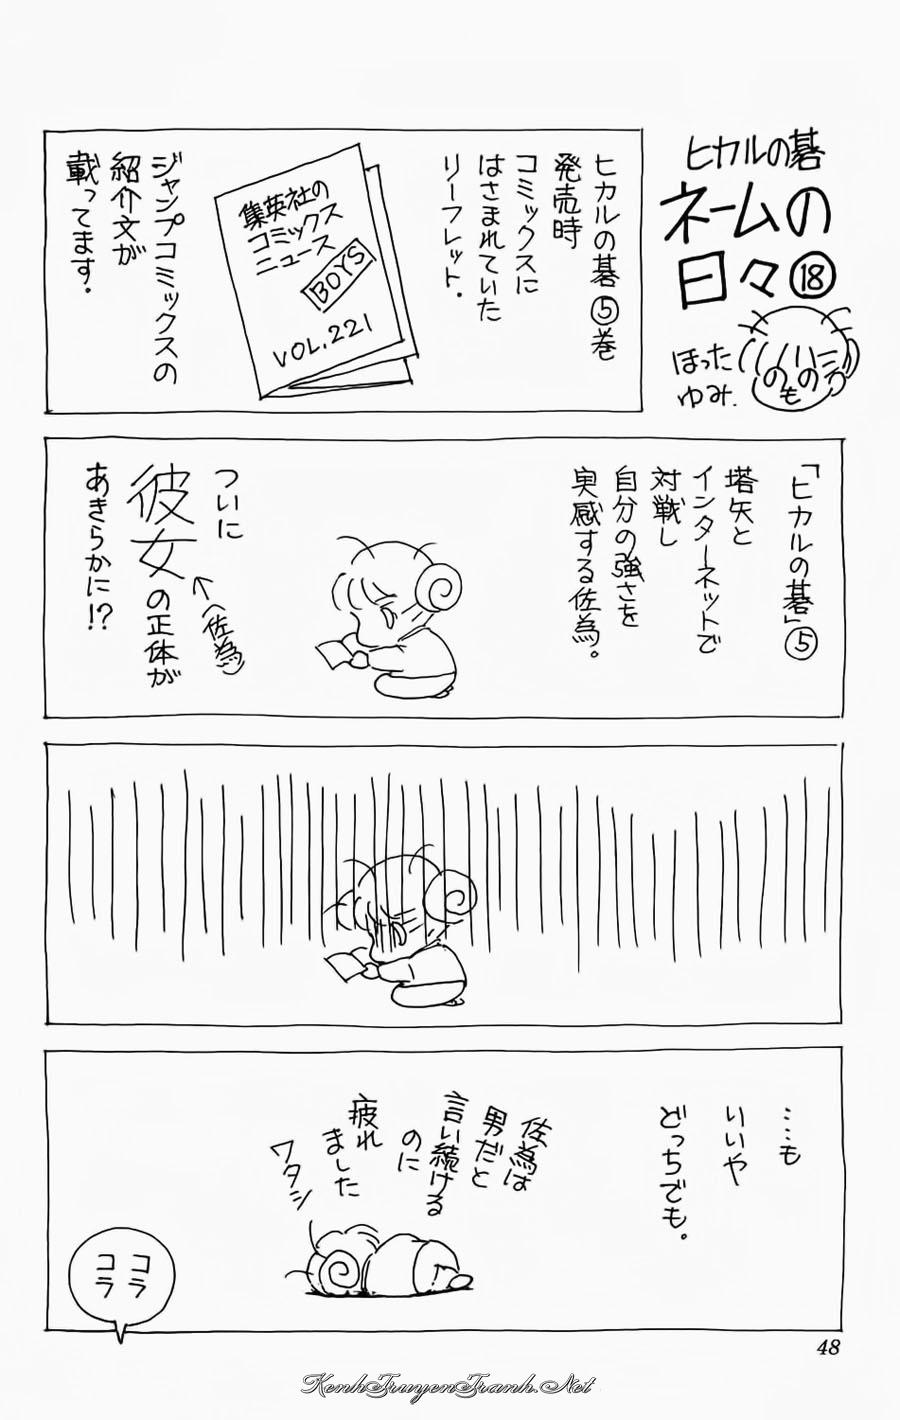 ヒカルの碁
ネームの
日々⑱
ほった
ゆみ.
へのへのもへの
ヒカルの碁⑤巻
発売時
コミックスに
はさまれていた
リーフレット.
集英社の
コミックス
ニュース
BOYS
VOL.221
ジャンプコミックスの
紹介文が
載ってます.
「ヒカルの碁」⑤
塔矢と
インターネットで
対戦し
自分の強さを
実感する佐為。
ついに
彼女の正体が
(佐為)
あきらかに!?
……も
いいや
どっちでも。
佐為は
男だと
言い続ける
のに
疲れ
ました
ワタシ
コラ
コラ
48
KenhTruyenTranh.Net